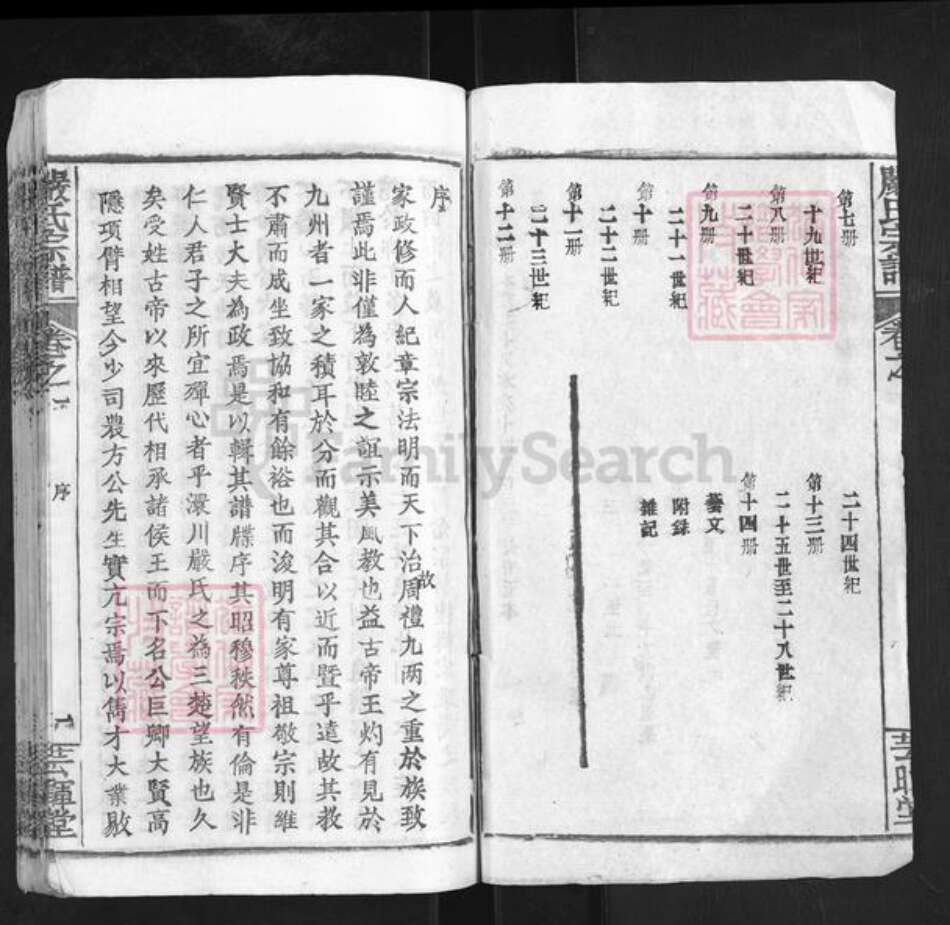 嚴氏宗譜
卷之
芸暉堂
第七册
十九世紀
第八册
二十世紀
第九册
二十一世紀
第十册
二十二世紀
第十一册
二十三世紀
第十二册
二十四世紀
第十三册
二十五世至二十八世紀
第十四册
藝文
附錄
雜記
序
家政修而人紀章宗法明而天下治故周禮九两之重於族致
謹焉此非僅為敦睦之誼示美風教也益古帝王灼有見於
九州者一家之積耳於分而觀其合以近而暨乎遠故其教
不肅而成坐致協和有餘裕也而浚明有家尊祖敬宗則維
賢士大夫為政焉是以輯其譜牒序其昭穆秩然有倫是非
仁人君子之所宜殫心者乎澴川嚴氏之為三楚望族也久
矣受姓古帝以來歷代相承諸侯王而下名公巨卿大賢高
隱項臂相望今少司農方公先生實亢宗焉以儁才大業敭
嚴氏宗譜
卷之一
序
芸暉堂
FamilySearch